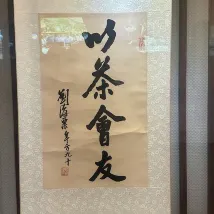 以茶會友
劉海粟 年方九十